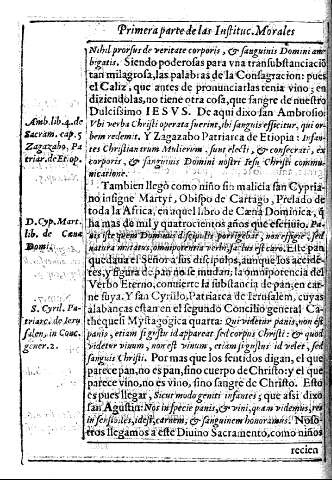 Primera parte de las Instituc. Morales
Nihil prorsus de veritate corporis, & sanguinis Domini am
bigatis. Siendo poderosas para vna transubstanciaciõ
tan milagrosa, las palabras de la Consagracion: pues
el Caliz, que antes de pronunciarlas tenia vino; en
diziendolas, no tiene otra cosa, que sangre de nuestro
Dulcissimo IESVS. De aqui dixo san Ambrosio:
Vbi verba Christi operata fuerint, ibi sanguis efficitur, qui or-
bem redemit. Y Zagazabo Patriarca de Etiopia: Infan-
tes Christianorum Mulierum, sunt electi, & consecrati, ex
corporis, & sanguinis Domini nostri Iesu Christi commu-
nicatione.
Amb. lib. 4. de
Sacram. cap. 5
Zagazabo, Pa
triar. de Et. op.
Tambien llegò como niño sin malicia san Cypria-
no insigne Martyr, Obispo de Cartago, Prelado de
toda la Africa, en aquel libro de Cæna Dominica, q̃
ha mas de mil y quatrocientos años que escriuio. Pa-
nis iste quem Dominus discipulis porrigebat, non effigie, sed
natura mutatus, omnipotentia verbi factus est caro. Este pan
que daua el Señor a sus discipulos, aunque los accidẽ-
tes, y figura de pan no se mudan; la omnipotencia del
Verbo Eterno, conuierte la substancia de pan, en car-
ne suya. Y san Cyrillo, Patriarca de Ierusalem, cuyas
alabanças estan en el segundo Concilio general Ca-
thequesi Mystagogica quarta: Qui videtur panis, non est
panis, etiam si gustu id appareat sed corpus Christi: & quod
videtur vinum, non est vinum, etiam si gustui id velet, sed
sanguis Christi. Por mas que los sentidos digan, el que
parece pan, no es pan, sino cuerpo de Christo: y el que
parece vino, no es vino, sino sangre de Christo. Esto
es pues llegar, Sicut modo geniti infantes; que assi dixo
san Agustin: Nos in specie panis, & vini, quam videmus, res
in sensibiles, id est, carnem, & sanguinem honoramus. Noso-
tros llegamos a este Diuino Sacramento, como niños
D. Cyp. Mart.
lib. de Cæna
Domi.
S. Cyril. Pa-
triarc. de Ieru
salen, in Conc.
gener. 2.
recien